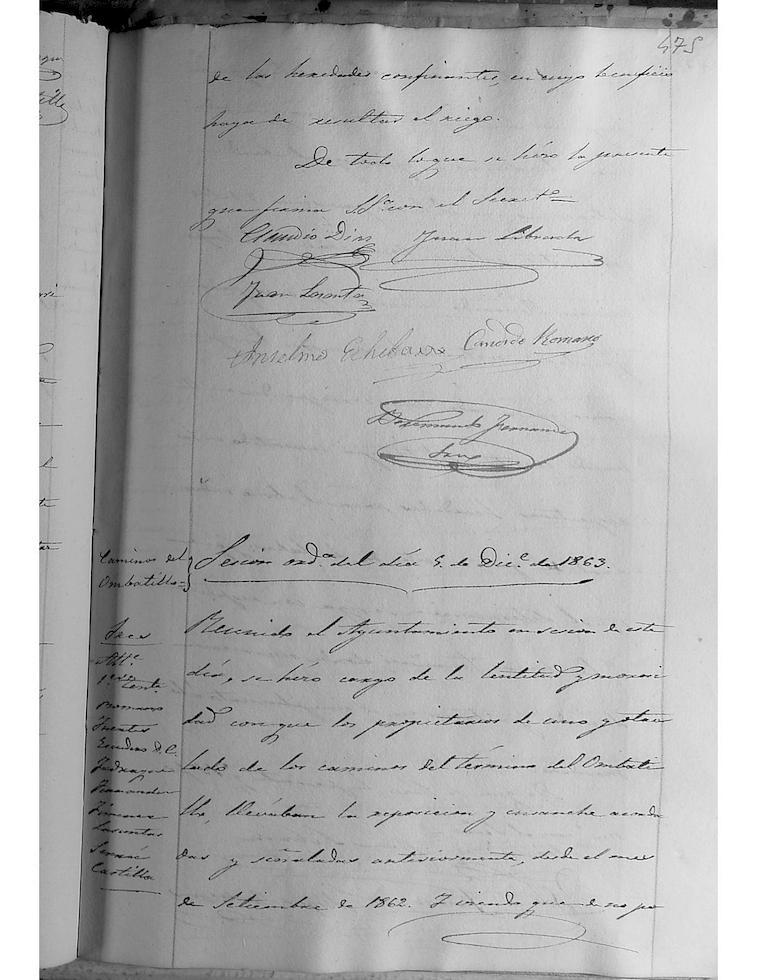 475
de las heredades confinantes, en cuyo beneficio
haya de resultar el riego.
De todo lo que se hizo la presente
que firma S.Sª con el Secretº =
Claudio Diaz Juan Librada
Juan Lasanta
Anselmo Echebarra Candido Romano
Fernandez
Caminos del
Ombatillo =
Sesion ordª del dia 5 de Dicº de 1863.
Sres
Alle
Romano
Fuentes
Escudero D. C.
Jadraque
Fernandez
Jimenez
Lasantas
Castilla
Reunido el Ayuntamiento en sesion de este
dia, se hizo cargo de la lentitud y morosi
dad con que los propietarios de uno y otro
lado de los caminos del término del Ombati
llo, llevaban la reposicion y ensanche acorda
das y señaladas anteriormente, desde el mes
de Setiembre de 1862. Y viendo que de no po